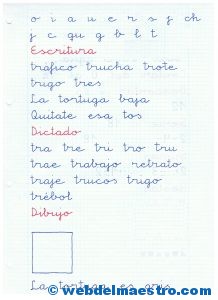 o i a u e r s y ch
j c qu g b l t
Escritura
tráfico trucha trote
trigo tres
La tortuga baja
Quitate esa tos
Dictado
tra tre tri tro tru
trae trabajo retrato
traje trucos trigo
trébol
Dibujo
La tortuga es gris
© webdelmaestro.com